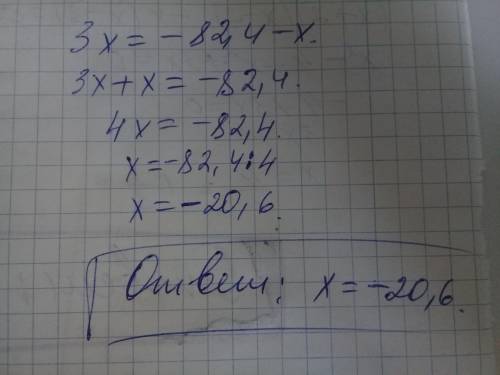 3x = -82,4 - x.
3x + x = -82,4.
4x = -82,4.
x = -82,4 : 4
x = -20,6.
Ответ: x = -20,6.